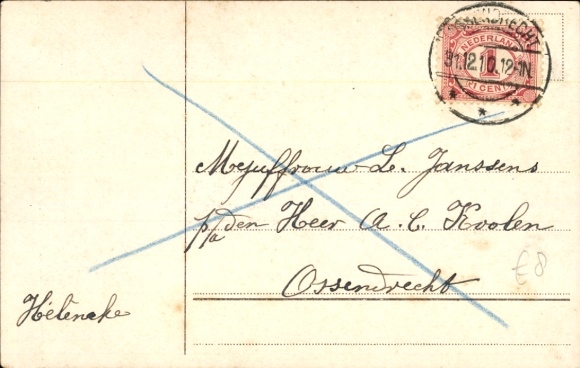 OSSENDRECHT
31.12.10.12-1N
NEDERLAND
1
CENT
Mejuffrouw L. Janssens
p/a den Heer A. C. Koolen
Ossendrecht
£8
Hélèneke